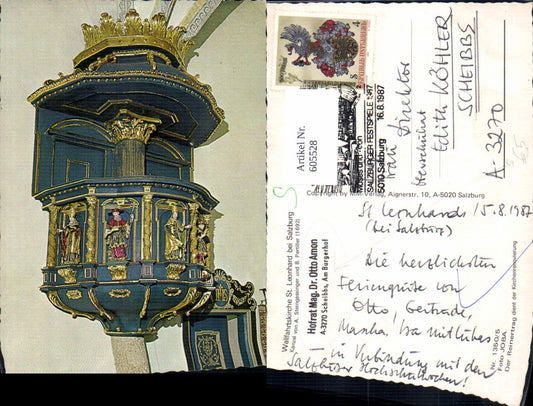 REPUBLIK ÖSTERREICH
SALZBURGER FESTSPIELE 1987
5010 Salzburg
16.8.1987
Artikel Nr.
605528
Frau Direktor
Edith KÖHLER
SCHEIBBS
A-3270
Copyright by
Verlag, Aignerstr. 10, A-5020 Salzburg
St Leonhard, 15.8.1987
(bei Salzburg)
Die herzlichsten
Feriengrüße von
Otto, Gertrude,
in Verbindung mit den
Salzburger Hochschulwochen!
Wallfahrtskirche St. Leonhard bei Salzburg
Kanzel von A. Steingassinger und B. Perttlier (1692)
Hofrat Mag. Dr. Otto Amon
A-3270 Scheibbs, Am Burgerhof
Nr. 1360/5
Foto JOBA
Der Reinertrag dient der Kirchenrestaurierung